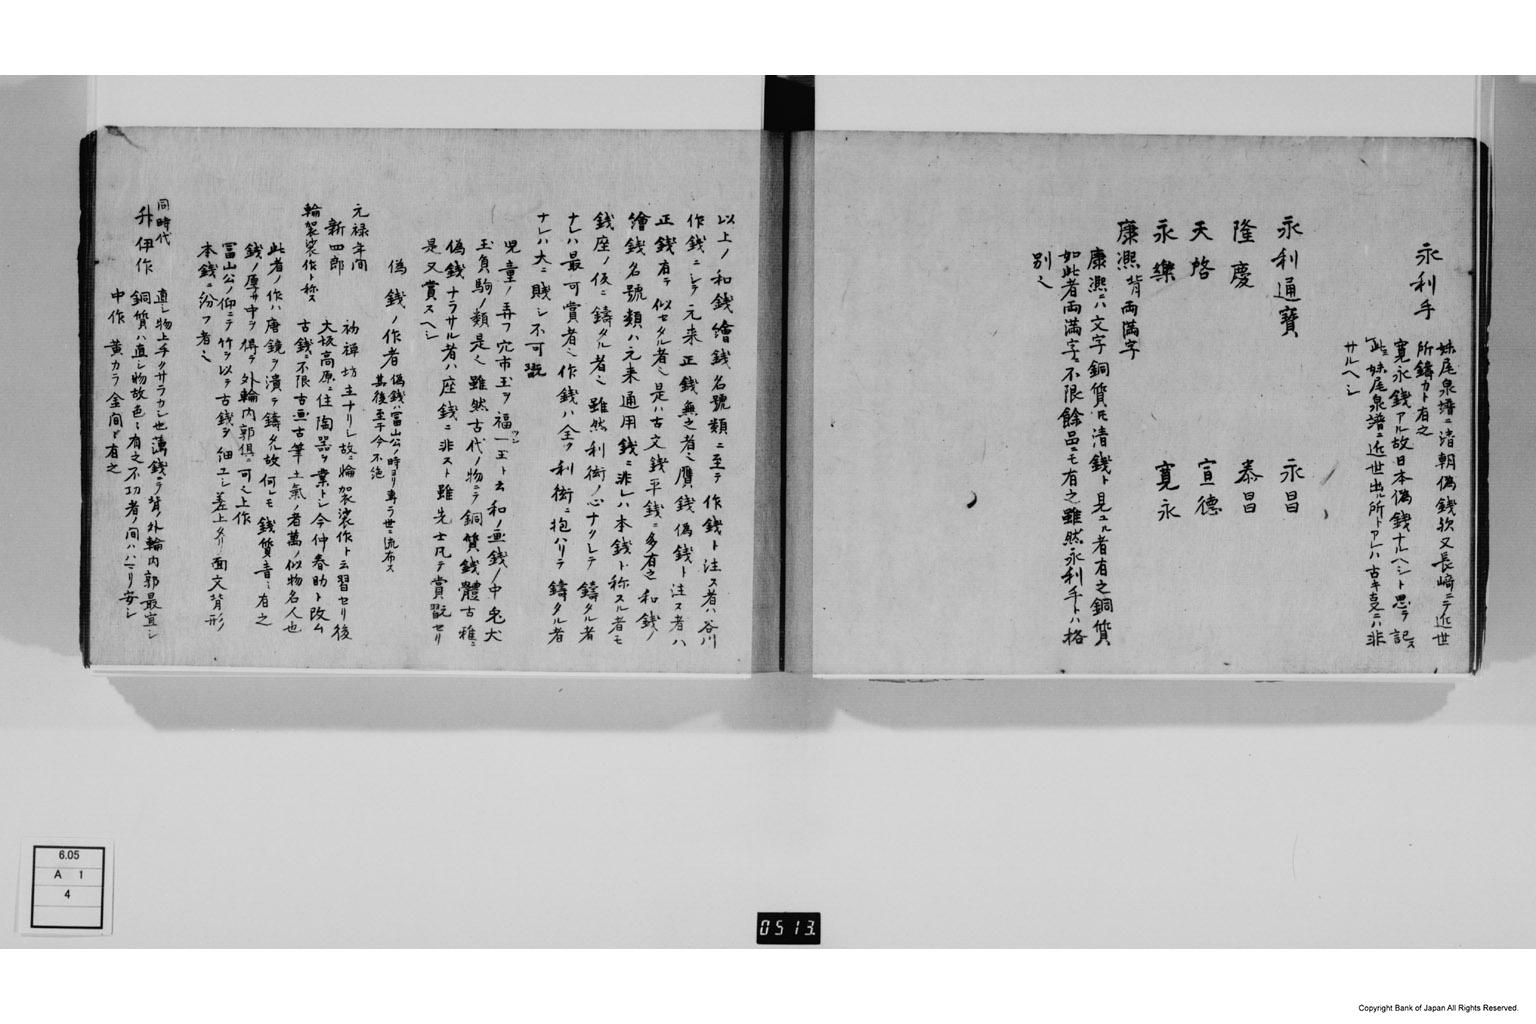 永利手
妹尾泉譜ニ清朝偽錢欤又長崎ニテ近世
所鑄カト有之
寛永錢アル故日本偽錢ナルヘシト思テ記ス
此ニ妹尾泉譜ニ近世出ル所トアレハ古キ克ニハ非
サルヘシ
永利通寶　永昌
隆慶　泰昌
天啓　宣德
永樂　寛永
康凞背両滿字
康凞ニハ文字銅質ハ清錢ト見ユル者有之銅質
如此者両滿字ニ不限餘品ニモ有之雖然永利手トハ格
別也
以上ノ和錢繪錢名號類ニ至テ作錢ト注ス者ハ谷川
作錢ニシテ元来正錢無之者也贋錢偽錢ト注ス者ハ
正錢有テ似セタル者也是ハ古文錢平錢ニ多有之和錢ノ
繪錢名號類ハ元来通用錢ニ非レハ本錢ト称スル者モ
錢座ノ仮ニ鑄タル者也雖然利術ノ心ナクシテ鑄タル者
ナレハ最可賞者也作錢ハ全ク利術ニ抱ハリテ鑄タル者
ナレハ大ニ賤シ不可翫
児童ノ弄フ穴市玉ヲ福一玉ト云和ノ画錢ノ中鬼犬
玉負駒ノ類是也雖然古代ノ物ニテ銅質錢體古雅ニ
偽錢ナラサル者ハ座錢ニ非スト雖先士凡テ賞翫セリ
是又賞スヘシ
偽錢ノ作者
偽錢ハ冨山公ノ時ヨリ専ラ世ニ流布ス
其後至于今不絶
元禄年間
新四郎
輪袈裟作ト称ス
初禅坊主ナリシ故ニ輪袈裟作ト云習セリ後
大坂高原住陶器ヲ業トシ今仲春助ト改ム
古錢ニ不限古画古筆土氣ノ者萬ノ似物名人也
此者ノ作ハ唐鏡ヲ潰テ鑄タル故何レモ錢質青ミ有之
錢ノ厚サ中ヲ得テ外輪内郭倶ニ可也上作
冨山公ノ仰ニテ竹ヲ以テ古錢ヲ細工シ差上タリ面文背形
本錢ニ紛フ者也
同時代
升伊作
直シ物上手クサラカシ也薄錢ニテ背ノ外輪内郭最宜シ
銅質ハ直シ物故色々有之不功者ノ間ハハマリ安シ
中作　黄カラ金間ド有之
6.05
A 1
4
0513.
Copyright Bank of Japan All Rights Reserved.